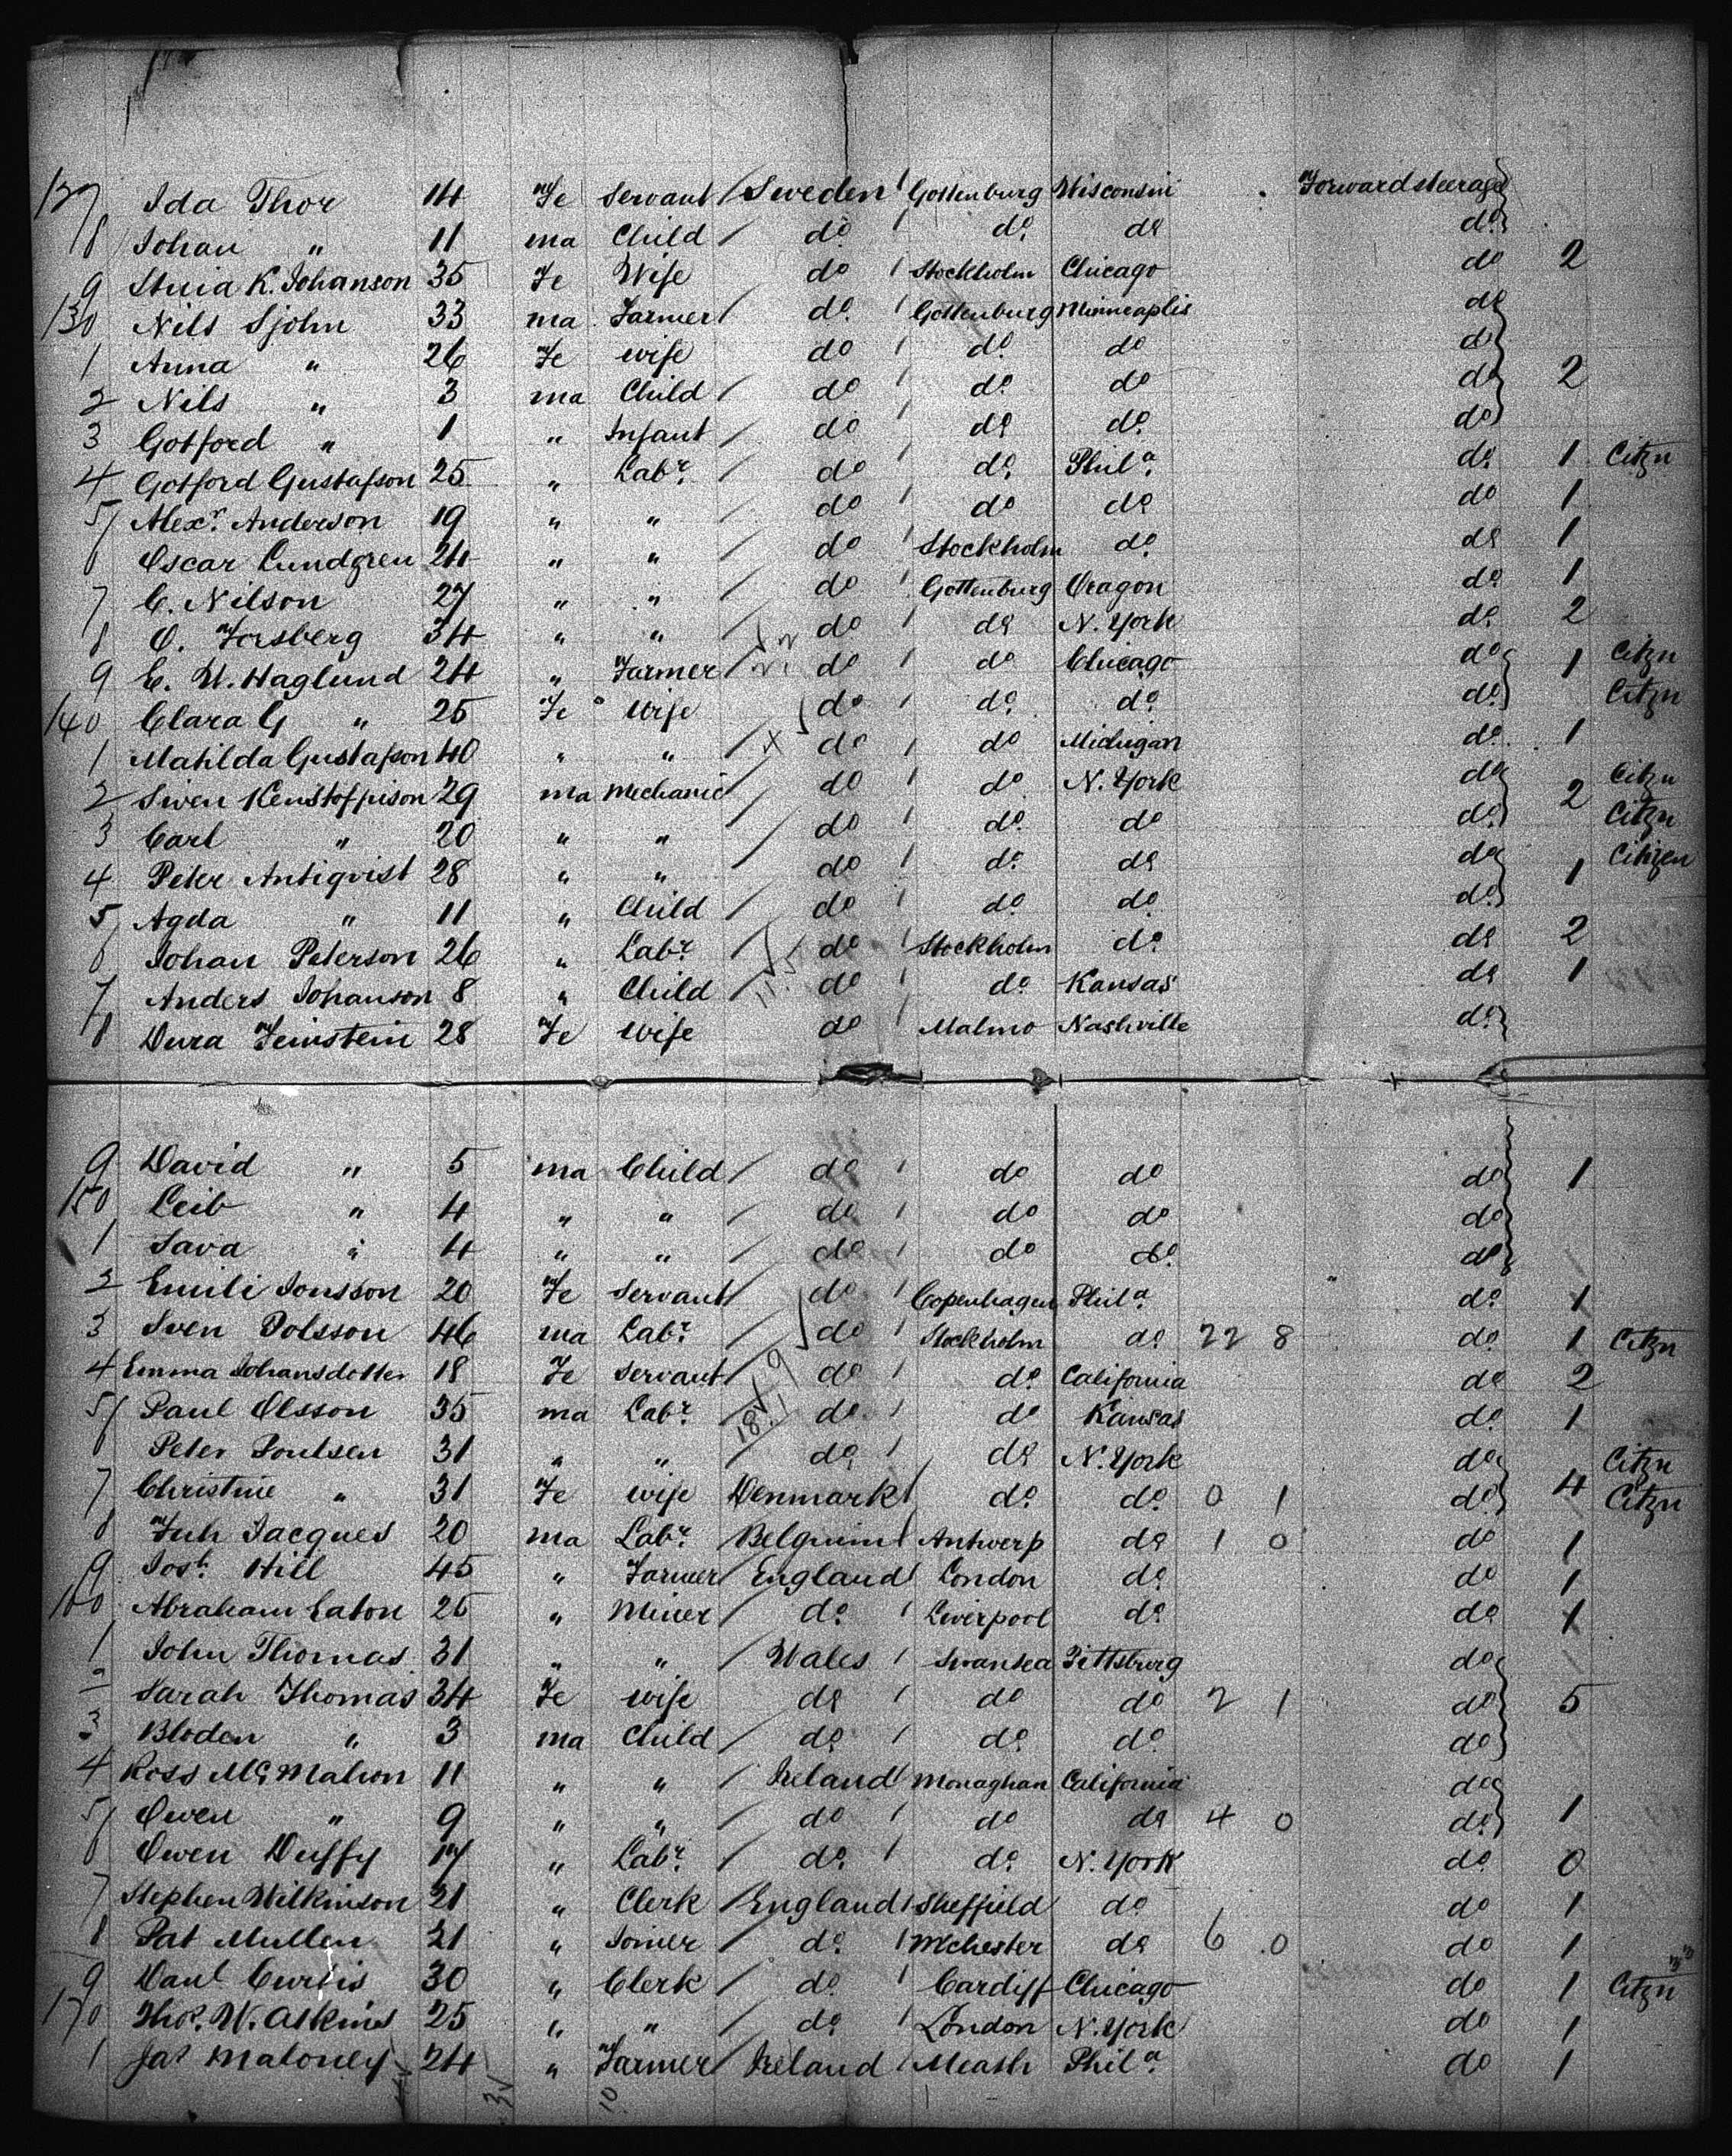 127 Ida Thor 14 Fe Servant / Sweden / Gottenburg Wisconsin Forward steerage
8 Johan " 11 ma Child / do / do do do
9 K. Johanson 35 Fe Wife do / Stockholm Chicago do 2
130 Nils Sjohn 33 ma Farmer / do / Gottenburg Minneaplis do
1 Anna " 26 Fe wife do / do do do
2 Nils " 3 ma Child / do / do do do 2
3 Gotford " 1 " Infant / do / do do do
4 Gotford Gustafson 25 " Labr / do / do Phila do 1 Citzn
5 Alexr Anderson 19 " " / do / do do do 1
6 Oscar Lundgren 24 " " / do / Stockholm do do 1
7 C. Nilson 27 " " / do / Gottenburg Oragon do 1
8 O. Forsberg 34 " " / do / do N. York do 2
9 E. W. Haglund 24 " Farmer / do / do Chicago do 1 Citzn
140 Clara G " 25 Fe " Wife do / do do do Citzn
1 Matilda Gustafson 40 " " / X do / do Michigan do 1
2 Swen 29 ma Mechanic / do / do N. York do 2 Citzn
3 Carl " 20 " " / do / do do do Citzn
4 Peter Antiqvist 28 " " / do / do do do 1 Citizen
5 Agda " 11 " Child / do / do do do
6 Johan Peterson 26 " Labr / do / Stockholm do do 2
7 Anders Johanson 8 " Child / do / do Kansas do 1
8 Dvra Feinstein 28 Fe Wife do / Malmo Nashville do
9 David " 5 ma Child / do / do do do 1
150 Leib " 4 " " / do / do do do
1 Sava " 4 " " / do / do do do
2 Emili Jonsson 20 Fe Servant / do / Copenhagen Phila do 1
3 Sven Polsson 46 ma Labr / do / Stockholm do 22 8 do 1 Citzn
4 Emma Johansdotter 18 Fe Servant / do / do California do 2
5 Paul Olsson 35 ma Labr / do / do Kansas do 1
6 Peter Poulsen 31 " " / do / do N. York do Citzn
7 Christine " 31 Fe wife Denmark / do do 0 1 do 4 Citzn
8 Jacques 20 ma Labr / Belguim / Antwerp do 1 0 do 1
9 Josh Hill 45 " Farmer / England / London do do 1
160 Abraham Eaton 25 " Miner / do / Liverpool do do 1
1 John Thomas 31 " " / Wales / Swansea Pittsburg do
2 Sarah Thomas 34 Fe wife do / do do 2 1 do 5
3 Bloden " 3 ma Child / do / do do do
4 Ross McMahon 11 " " / Ireland / Monaghan California do
5 Owen " 9 " " / do / do do 4 0 do 1
6 Owen Duffy 17 " Labr / do / do N. York do 0
7 Stephen Wilkinson 21 " Clerk / England / Sheffield do do 1
8 Pat Mullen 21 " Joiner / do / Mchester do 6 0 do 1
9 Danl Curtis 30 " Clerk / do / Cardiff Chicago do 1 Citzn
170 Thos. W. Atkins 25 " " / do / London N. York do 1
1 Jas Maloney 24 " Farmer / Ireland / Meath Phila do 1